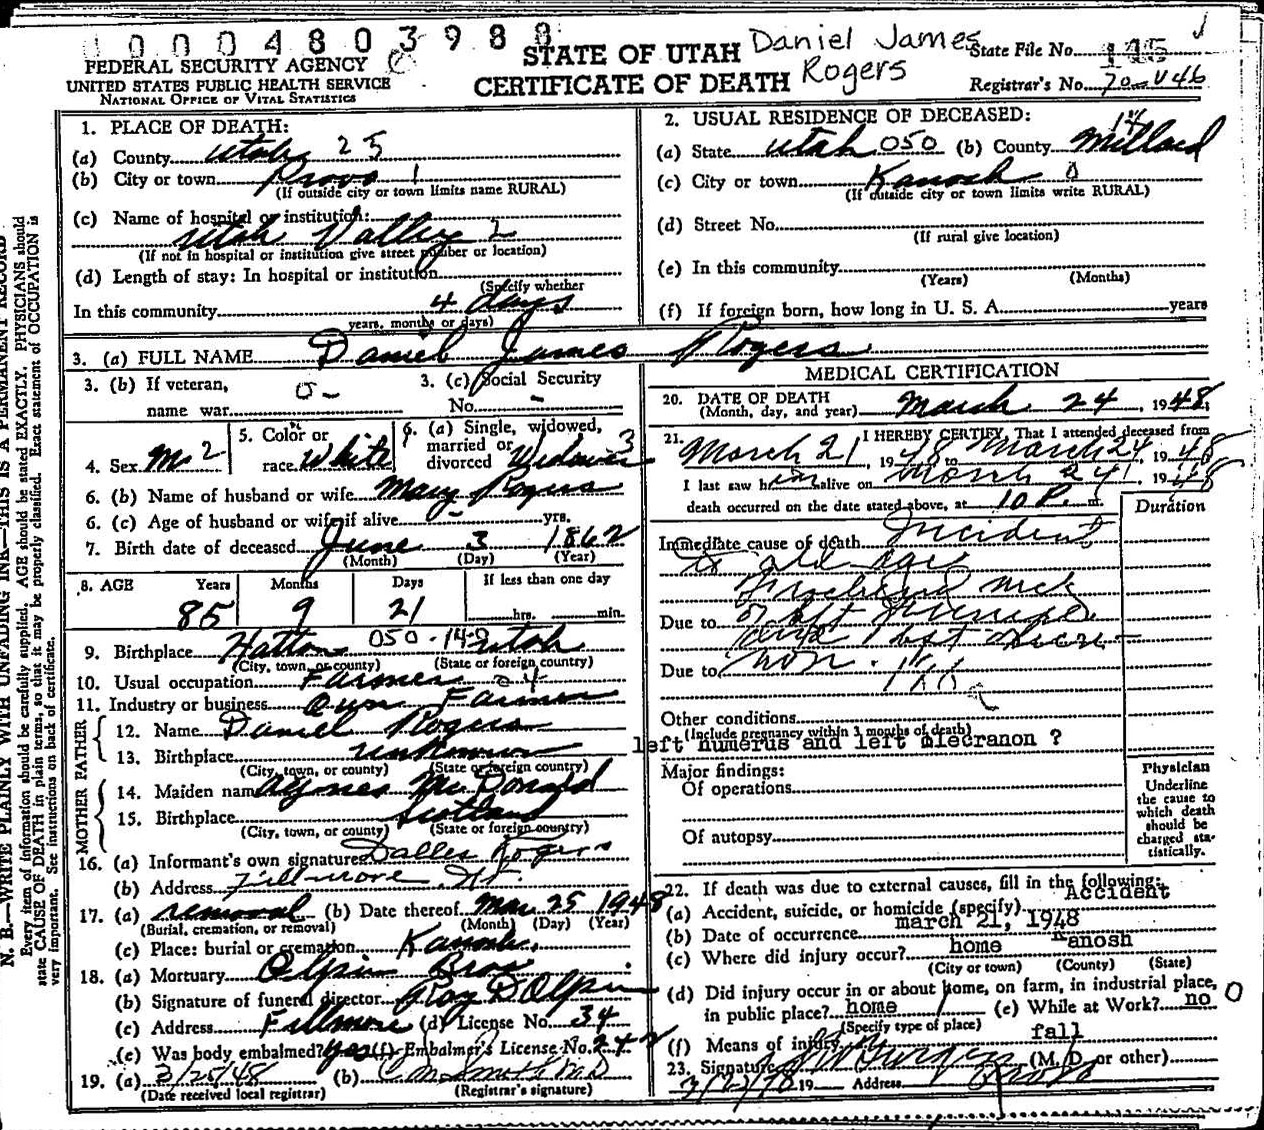 10004803988
FEDERAL SECURITY AGENCY
UNITED STATES PUBLIC HEALTH SERVICE
NATIONAL OFFICE OF VITAL STATISTICS
STATE OF UTAH
CERTIFICATE OF DEATH
Daniel James
Rogers
State File No.
Registrar's No. 70-V46
1. PLACE OF DEATH:
(a) County Utah 25
(b) City or town Provo 1
(If outside city or town limits name RURAL)
(c) Name of hospital or institution:
Utah Valley 2
(If not in hospital or institution give street number or location)
(d) Length of stay: In hospital or institution
(Specify whether
In this community 4 days
years, months or days)
2. USUAL RESIDENCE OF DECEASED:
(a) State Utah 050 (b) County Millard 14
(c) City or town Kanosh 0
(If outside city or town limits write RURAL)
(d) Street No.
(If rural give location)
(e) In this community
(Years) (Months)
(f) If foreign born, how long in U. S. A. years
3. (a) FULL NAME Daniel James Rogers
3. (b) If veteran, name war 0-
3. (c) Social Security No. -
4. Sex M 2
5. Color or race White
6. (a) Single, widowed, married or divorced Widower 3
6. (b) Name of husband or wife Mary Rogers
6. (c) Age of husband or wife if alive - yrs.
7. Birth date of deceased June 3 1862
(Month) (Day) (Year)
8. AGE Years Months Days If less than one day
85 9 21 hrs. min.
9. Birthplace Hatton 050-14-0 Utah
(City, town, or county) (State or foreign country)
10. Usual occupation Farmer 04
11. Industry or business Own Farmer
FATHER
12. Name Daniel Rogers
13. Birthplace unknown
(City, town, or county) (State or foreign country)
MOTHER
14. Maiden name Agnes McDonald
15. Birthplace Scotland
(City, town, or county) (State or foreign country)
16. (a) Informant's own signature Dalles Rogers
(b) Address Fillmore, Ut.
17. (a) removal (b) Date thereof Mar 25 1948
(Burial, cremation, or removal) (Month) (Day) (Year)
(c) Place: burial or cremation Kanosh.
18. (a) Mortuary Olpin Bros
(b) Signature of funeral director Roy D Olpin
(c) Address Fillmore (d) License No. 34
(e) Was body embalmed? yes (f) Embalmer's License No. 242
19. (a) 3/25/48 (b) C. M. Smith M.D.
(Date received local registrar) (Registrar's signature)
MEDICAL CERTIFICATION
20. DATE OF DEATH
(Month, day, and year) March 24, 1948
21. I HEREBY CERTIFY, That I attended deceased from
March 21, 1948 to March 24, 1948
I last saw him alive on March 24, 1948
death occurred on the date stated above, at 10 P. m.
Duration
Immediate cause of death Incident
to old age
Due to of left
Due to
Other conditions
(Include pregnancy within 3 months of death)
left humerus and left olecranon ?
Major findings:
Of operations
Of autopsy
Physician
Underline
the cause to
which death
should be
charged sta-
tistically.
22. If death was due to external causes, fill in the following:
(a) Accident, suicide, or homicide (specify) Accident
(b) Date of occurrence march 21, 1948
(c) Where did injury occur? home Kanosh
(City or town) (County) (State)
(d) Did injury occur in or about home, on farm, in industrial place,
in public place? home (e) While at Work? no 0
(Specify type of place)
(f) Means of injury fall
23. Signature (M. D. or other)
19 Address Provo
N. B.—WRITE PLAINLY WITH UNFADING INK—THIS IS A PERMANENT RECORD
Every item of information should be carefully supplied. AGE should be stated EXACTLY. PHYSICIANS should
state CAUSE OF DEATH in plain terms, so that it may be properly classified. Exact statement of OCCUPATION is
very important. See instructions on back of certificate.